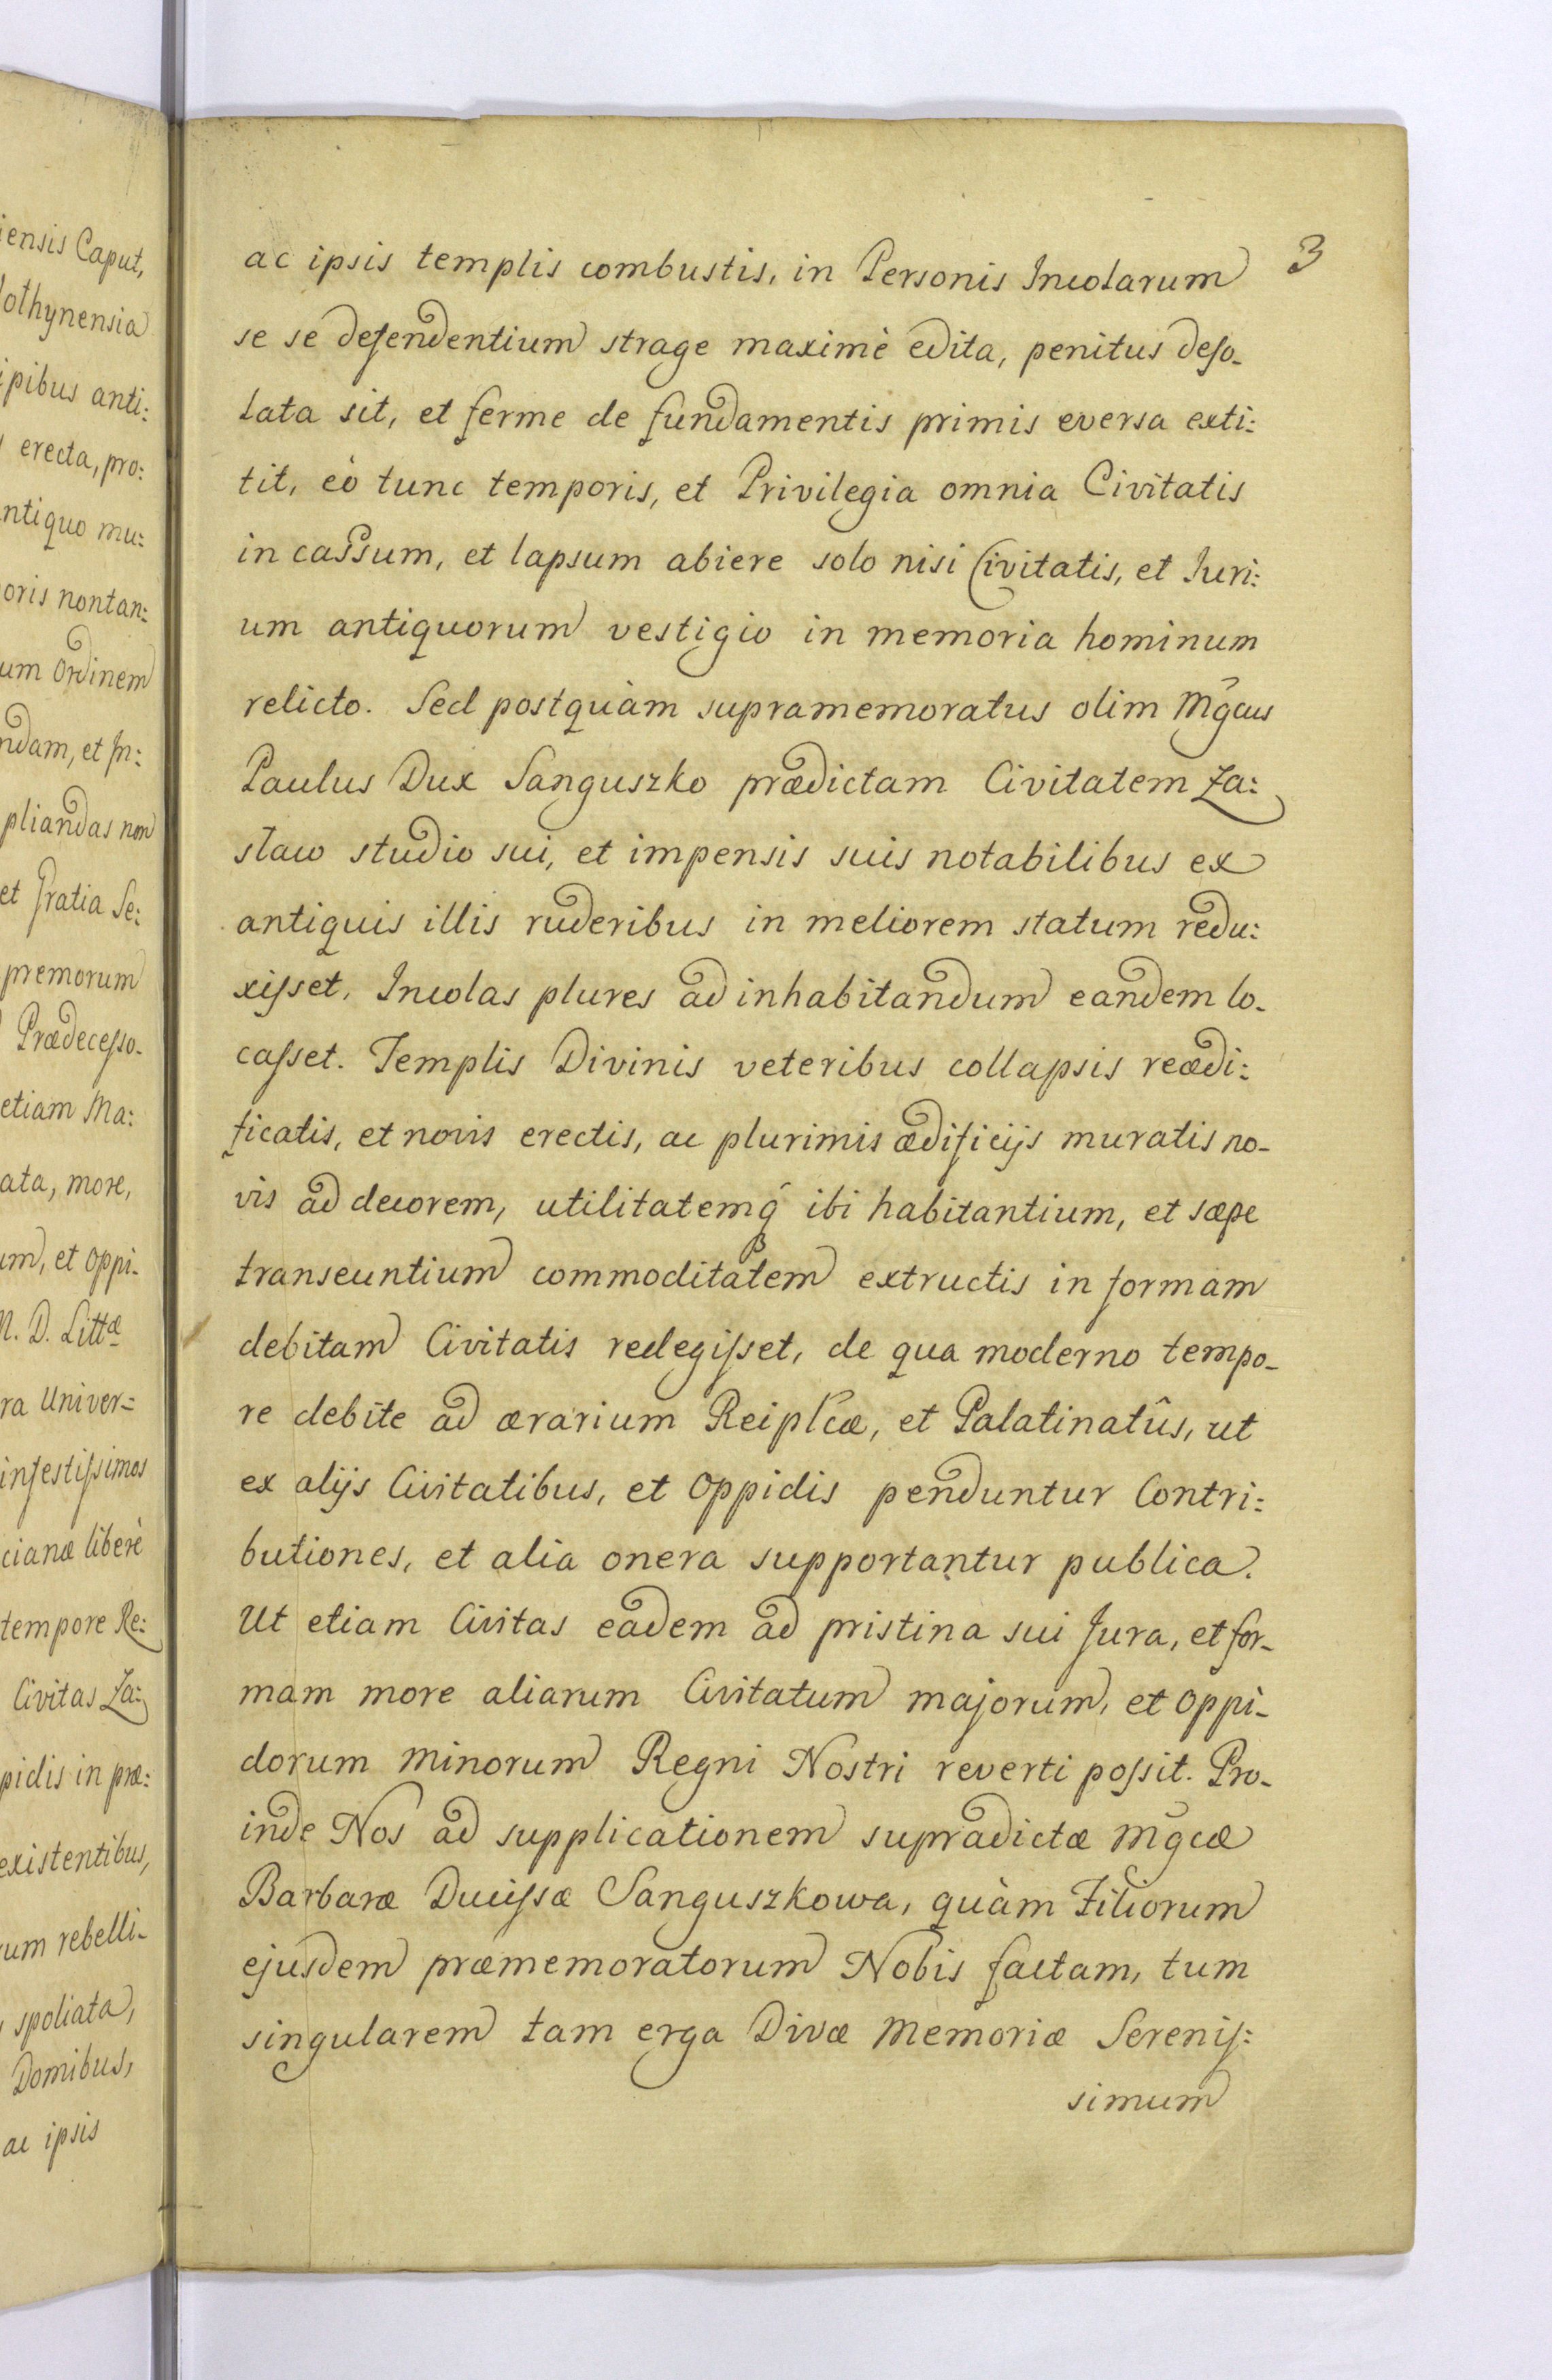 iensis Caput,
lothynensia
ipibus anti:
erecta, pro:
ntiquo mu:
oris nontan:
um Ordinem
ndam, et In:
pliandas non
et Gratia Se:
premorum
Prædecesso-
etiam Ma:
ata, more,
um, et Oppi-
N. D. Littæ
ra Univer=
infestissimos
cianæ liberè
tempore Re:
Civitas Za:
pidis in præ:
existentibus,
rum rebelli-
spoliata,
Domibus,
ac ipsis
3
ac ipsis templis combustis, in Personis Incolarum
se se defendentium strage maximè edita, penitus deso-
lata sit, et ferme de fundamentis primis eversa exti:
tit, eò tunc temporis, et Privilegia omnia Civitatis
in cassum, et lapsum abiere solo nisi Civitatis, et Juri:
um antiquorum vestigio in memoria hominum
relicto. Sed postquàm supramemoratus olim Mg̃cus
Paulus Dux Sanguszko prædictam Civitatem Za:
sław studio sui, et impensis suis notabilibus ex
antiquis illis ruderibus in meliorem statum redu:
xisset, Incolas plures ad inhabitandum eandem lo-
casset. Templis Divinis veteribus collapsis reædi:
ficatis, et novis erectis, ac plurimis ædificijs muratis no-
vis ad decorem, utilitatemq́ ibi habitantium, et sæpe
transeuntium commoditatem extructis in formam
debitam Civitatis redegisset, de qua moderno tempo-
re debite ad ærarium Reipl̃cæ, et Palatinatûs, ut
ex alijs Civitatibus, et Oppidis penduntur Contri:
butiones, et alia onera supportantur publica.
Ut etiam Civitas eadem ad pristina sui Jura, et for-
mam more aliarum Civitatum majorum, et Oppi-
dorum minorum Regni Nostri reverti possit. Pro-
inde Nos ad supplicationem supradictæ Mg̃cæ
Barbaræ Ducissæ Sanguszkowa, quàm Filiorum
ejusdem præmemoratorum Nobis factam, tum
singularem tam erga Divæ Memoriæ Serenis:
simum